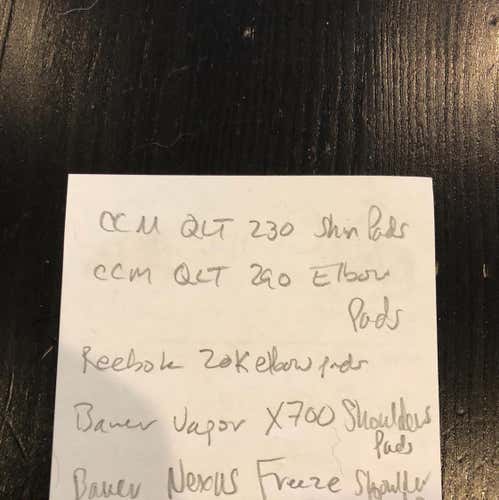 CCM QLT 230 Shin Pads
CCM QLT 290 Elbow
Pads
Reebok 20K elbow pads
Bauer Vapor X700 Shoulders
Pads
Bauer Nexus Freeze Shoulder